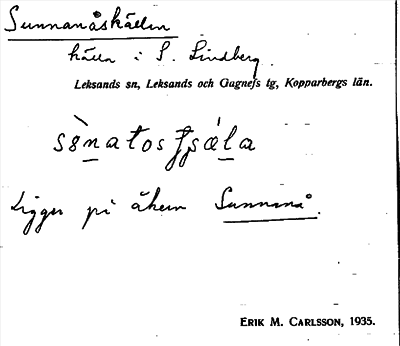 Sunnanåskällan
källa i S. Lindberg.
Leksands sn, Leksands och Gagnefs tg, Kopparbergs län.
Ligger på åkern Sunnanå.
ERIK M. CARLSSON, 1935.